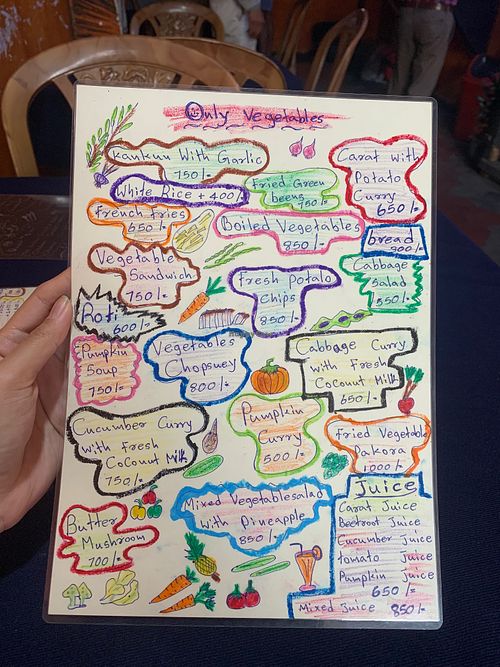 Only Vegetables
Kankun With Garlic
750/-
White Rice + 400/-
French fries
650/-
Fried Green
beens
750/-
Carat with
Potato
Curry
650/-
Boiled Vegetables
850/-
bread
Vegetable
Sandwich
750/-
Fresh Potato
Chips
850/-
Cabbage
Salad
550/-
Roti
600/-
Pumpkin
Soup
750/-
Vegetables
Chopsuey
800/-
Cabbage Curry
with Fresh
Coconut Milk
650/-
Cucumber Curry
with Fresh
CoConut Milk
750/-
Pumpkin
Curry
500/-
Fried Vegetable
Pakora
1000/-
Butter
Mushroom
700/-
Mixed Vegetablesalad
with Pineapple
850/-
Juice
Carat Juice
Beetroot Juice
Cucumber Juice
tomato Juice
Pumpkin Juice
650/-
Mixed Juice 850/-